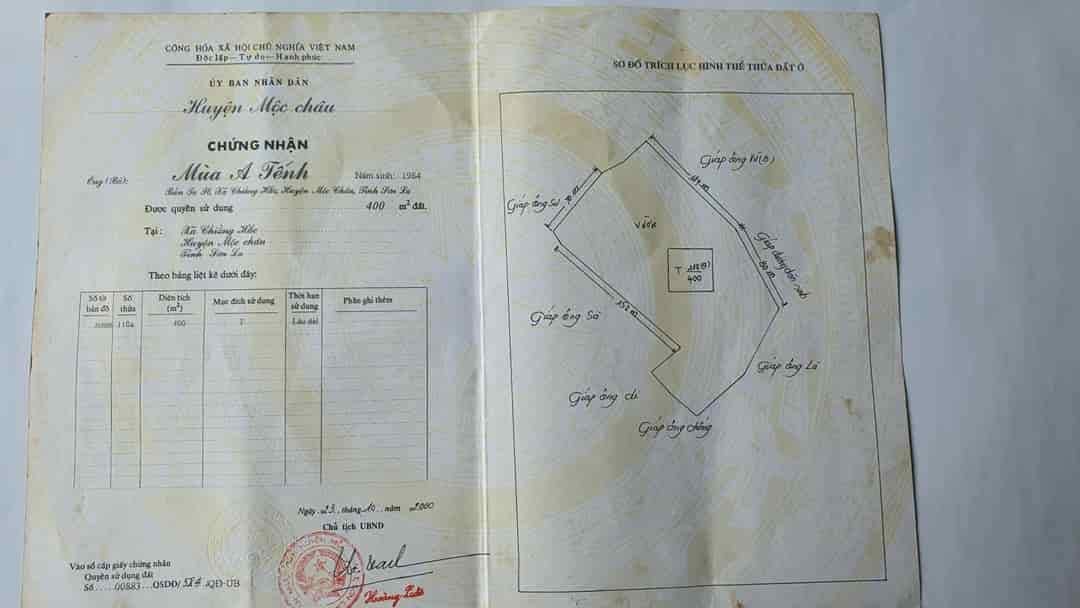 CỘNG HÒA XÃ HỘI CHỦ NGHĨA VIỆT NAM
Độc lập - Tự do - Hạnh phúc
ỦY BAN NHÂN DÂN
Huyện Mộc châu
CHỨNG NHẬN
Ông (Bà): Mùa A Tếnh Năm sinh: 1984
Xã Chiềng Hắc, Huyện Mộc Châu, Tỉnh Sơn La
Được quyền sử dụng 400 m² đất.
Tại: Xã Chiềng Hắc
Huyện Mộc châu
Tỉnh Sơn La
Theo bảng liệt kê dưới đây:
Số tờ bản đồ Số thửa Diện tích (m²) Mục đích sử dụng Thời hạn sử dụng Phần ghi thêm
400 T Lâu dài
Ngày 23 tháng 10 năm 2000
Chủ tịch UBND
Vào sổ cấp giấy chứng nhận
Quyền sử dụng đất
Số 00883 QSDĐ/ QĐ-UB
SƠ ĐỒ TRÍCH LỤC HÌNH THỂ THỬA ĐẤT Ở
Giáp ông
Giáp ông
Vườn
80 m
T
400
Giáp ông Sá
152 m
Giáp ông Lá
Giáp ông
Giáp ông chống